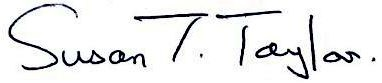 Susan T. Taylor.